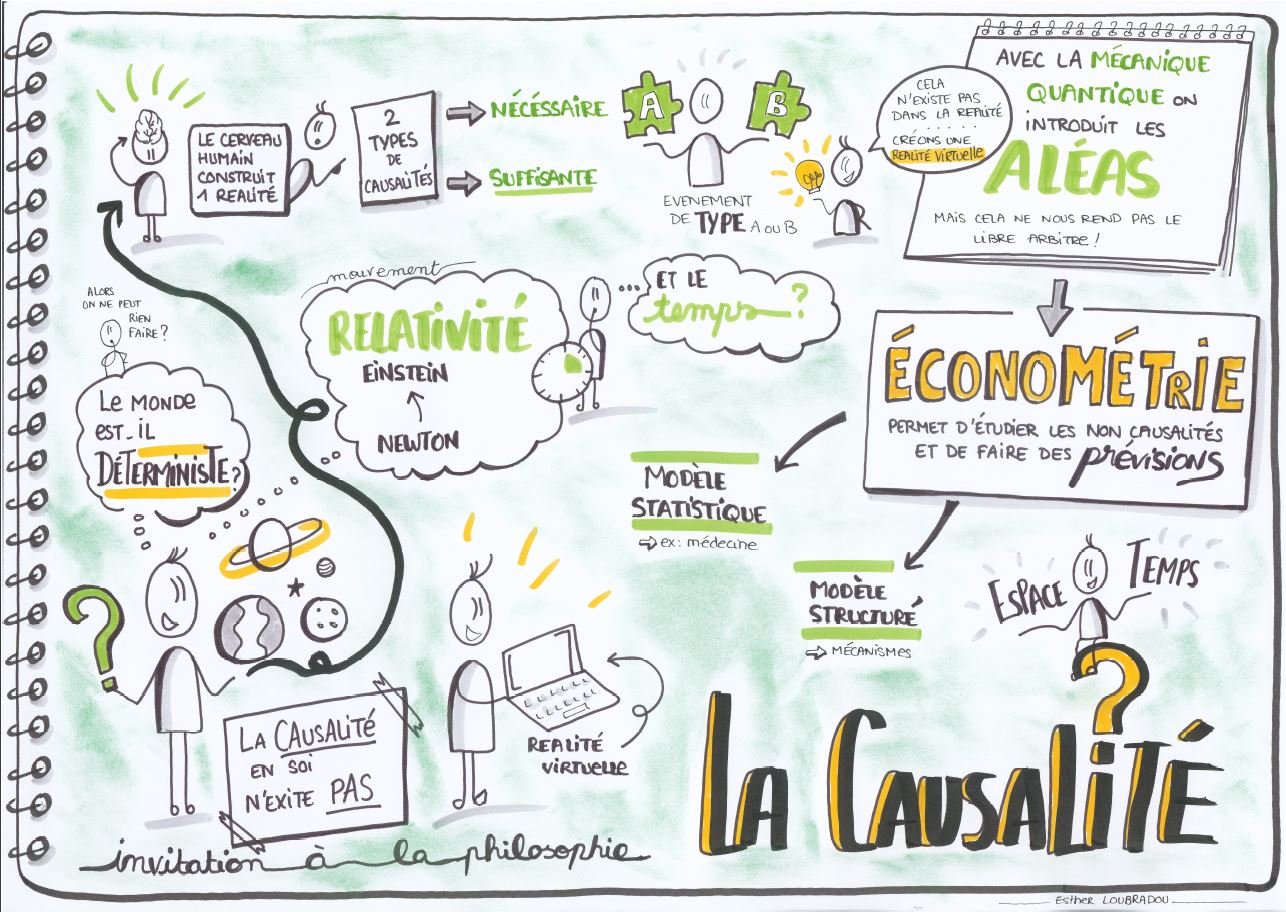 LE CERVEAU
HUMAIN
CONSTRUIT
1 REALITÉ
2
TYPES
DE
CAUSALITÉS
NÉCÉSSAIRE
SUFFISANTE
A
B
EVENEMENT
DE TYPE A OU B
CELA
N'EXISTE PAS
DANS LA REALITÉ
.....
CRÉONS UNE
REALITÉ VIRTUELLE
AVEC LA MÉCANIQUE
QUANTIQUE ON
INTRODUIT LES
ALÉAS
MAIS CELA NE NOUS REND PAS LE
LIBRE ARBITRE !
ALORS
ON NE PEUT
RIEN
FAIRE ?
LE MONDE
EST-IL
DÉTERMINISTE ?
mouvement
RELATIVITÉ
EINSTEIN
NEWTON
... ET LE
temps ?
ÉCONOMÉTRIE
PERMET D'ÉTUDIER LES NON CAUSALITÉS
ET DE FAIRE DES prévisions
MODÈLE
STATISTIQUE
⇨ ex : médecine
MODÈLE
STRUCTURÉ
⇨ MÉCANISMES
ESPACE
TEMPS
?
?
LA CAUSALITÉ
EN SOI
N'EXITE PAS
REALITÉ
VIRTUELLE
LA CAUSALITÉ
invitation à la philosophie
Esther LOUBRADOU